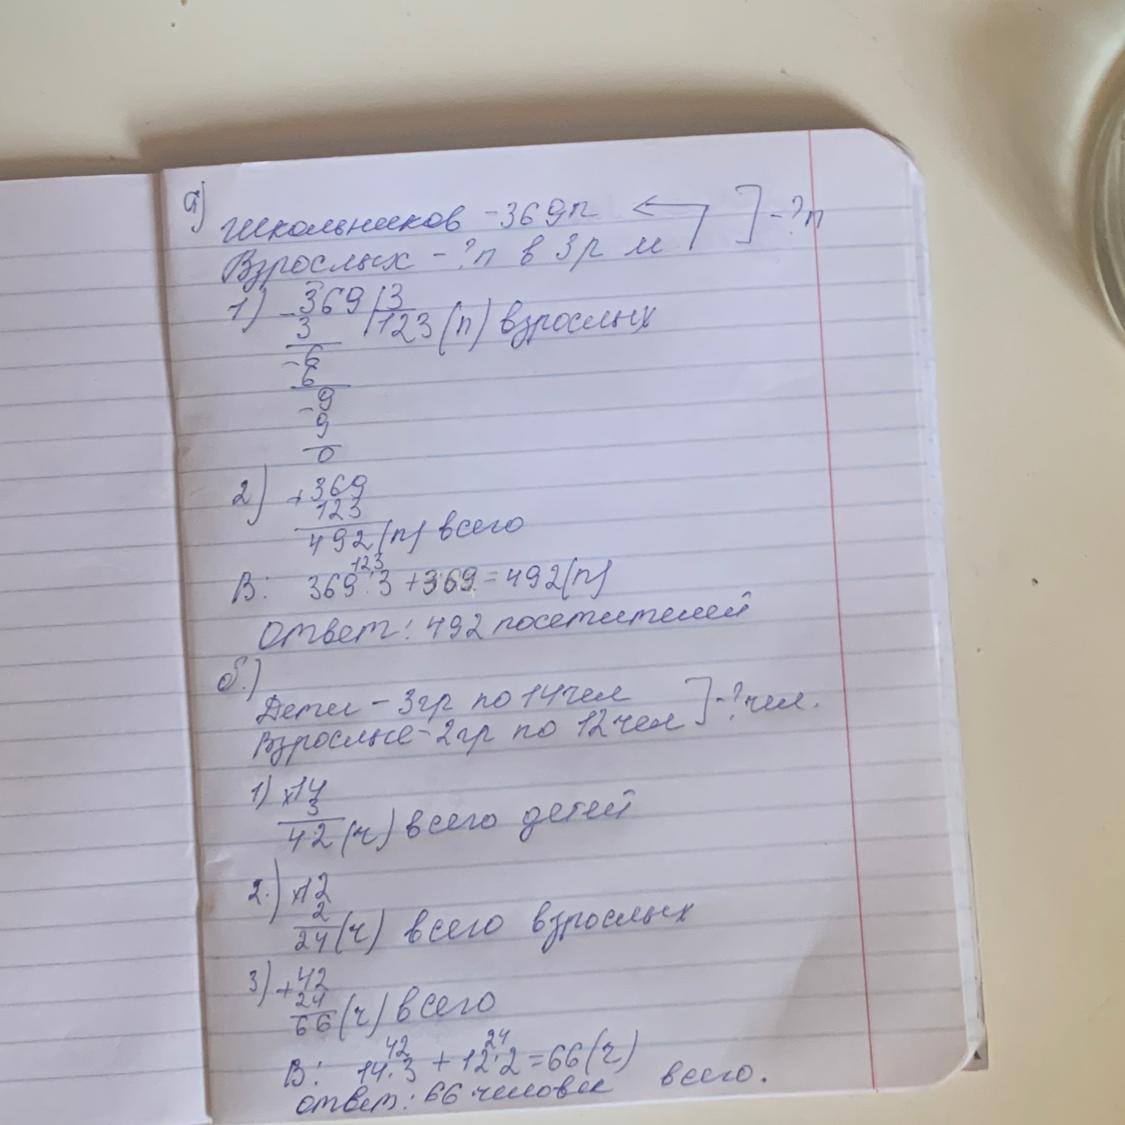 а)
Школьников - 369п ] - ? п
Взрослых - ? п в 3р м
1) - 369 | 3
3 123 (п) взрослых
- 6
6
- 9
9
0
2) + 369
123
492 (п) всего
123
В: 369 : 3 + 369 = 492 (п)
Ответ: 492 посетителей
б.)
Дети - 3гр по 14чел ] - ? чел.
Взрослые - 2гр по 12чел
1) x 14
3
42 (ч) всего детей
2.) x 12
2
24 (ч) всего взрослых
3) + 42
24
66 (ч) всего
42 24
В: 14 · 3 + 12 · 2 = 66 (ч)
ответ: 66 человек всего.